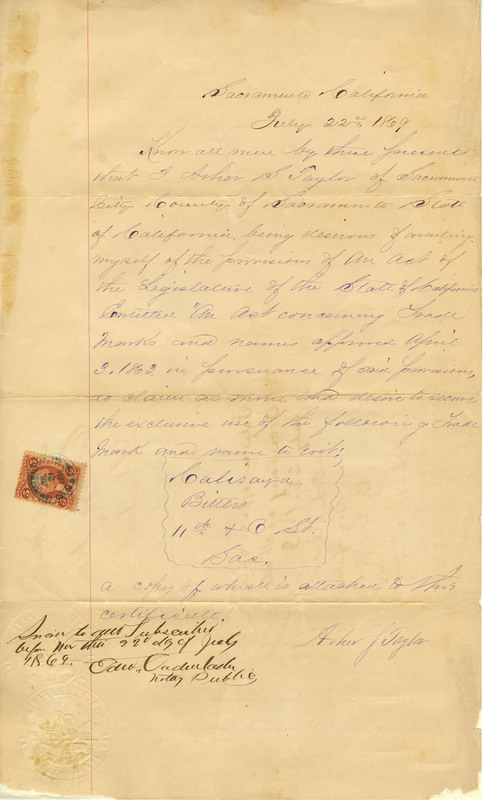 Sacramento California
July 22nd, 1869
Know all men by these presents
that I Asher S Taylor of Sacramento
City County of Sacramento State
of California, being desirous of availing
myself of the provisions of An Act of
the Legislature of the State of California
Entitled "An Act concerning Trade
Marks and names approved April
3, 1863 in pursuance of said provisions,
do claim as mine and desire to secure
the exclusive use of the following Trade
mark and name to wit;
Calisaya,
Bitters
11th & O St.
Sac.
a copy of which is attached to this
certificate.
Asher S Taylor
Sworn to and Subscribed
before me this 22d day of July
1869
Edw.
Notary Public